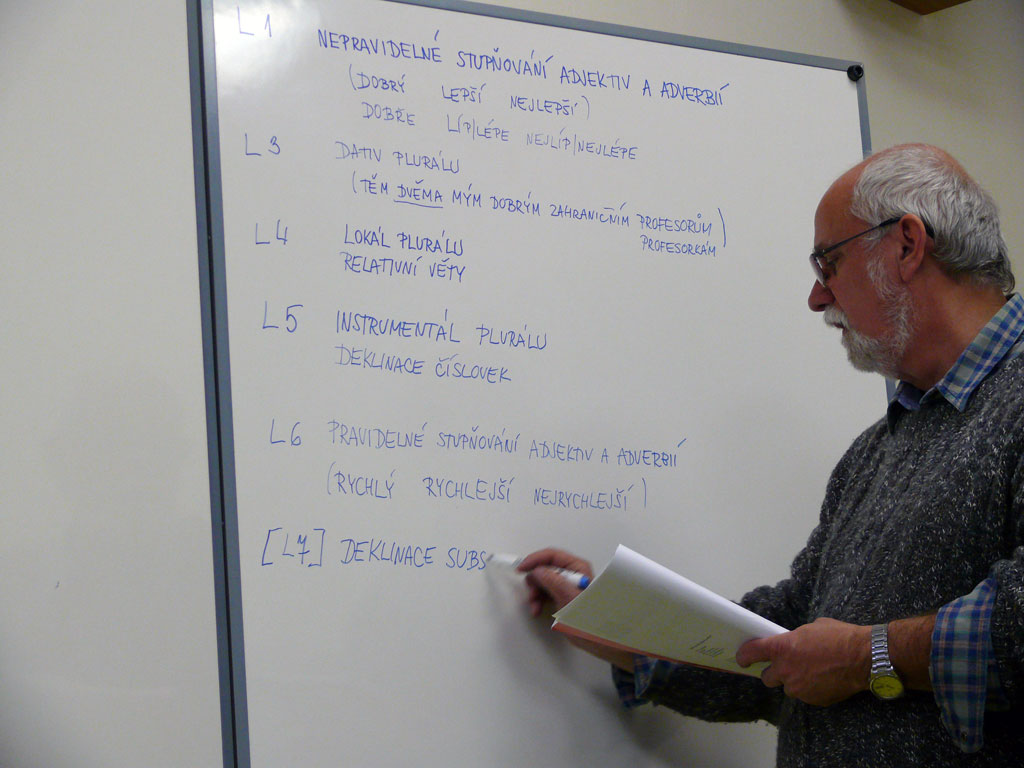 L1 NEPRAVIDELNÉ STUPŇOVÁNÍ ADJEKTIV A ADVERBIÍ
(DOBRÝ LEPŠÍ NEJLEPŠÍ)
DOBŘE LÍP/LÉPE NEJLÍP/NEJLÉPE
L3 DATIV PLURÁLU
(TĚM DVĚMA MÝM DOBRÝM ZAHRANIČNÍM PROFESORŮM)
PROFESORKÁM
L4 LOKÁL PLURÁLU
RELATIVNÍ VĚTY
L5 INSTRUMENTÁL PLURÁLU
DEKLINACE ČÍSLOVEK
L6 PRAVIDELNÉ STUPŇOVÁNÍ ADJEKTIV A ADVERBIÍ
(RYCHLÝ RYCHLEJŠÍ NEJRYCHLEJŠÍ)
[L7] DEKLINACE SUBS